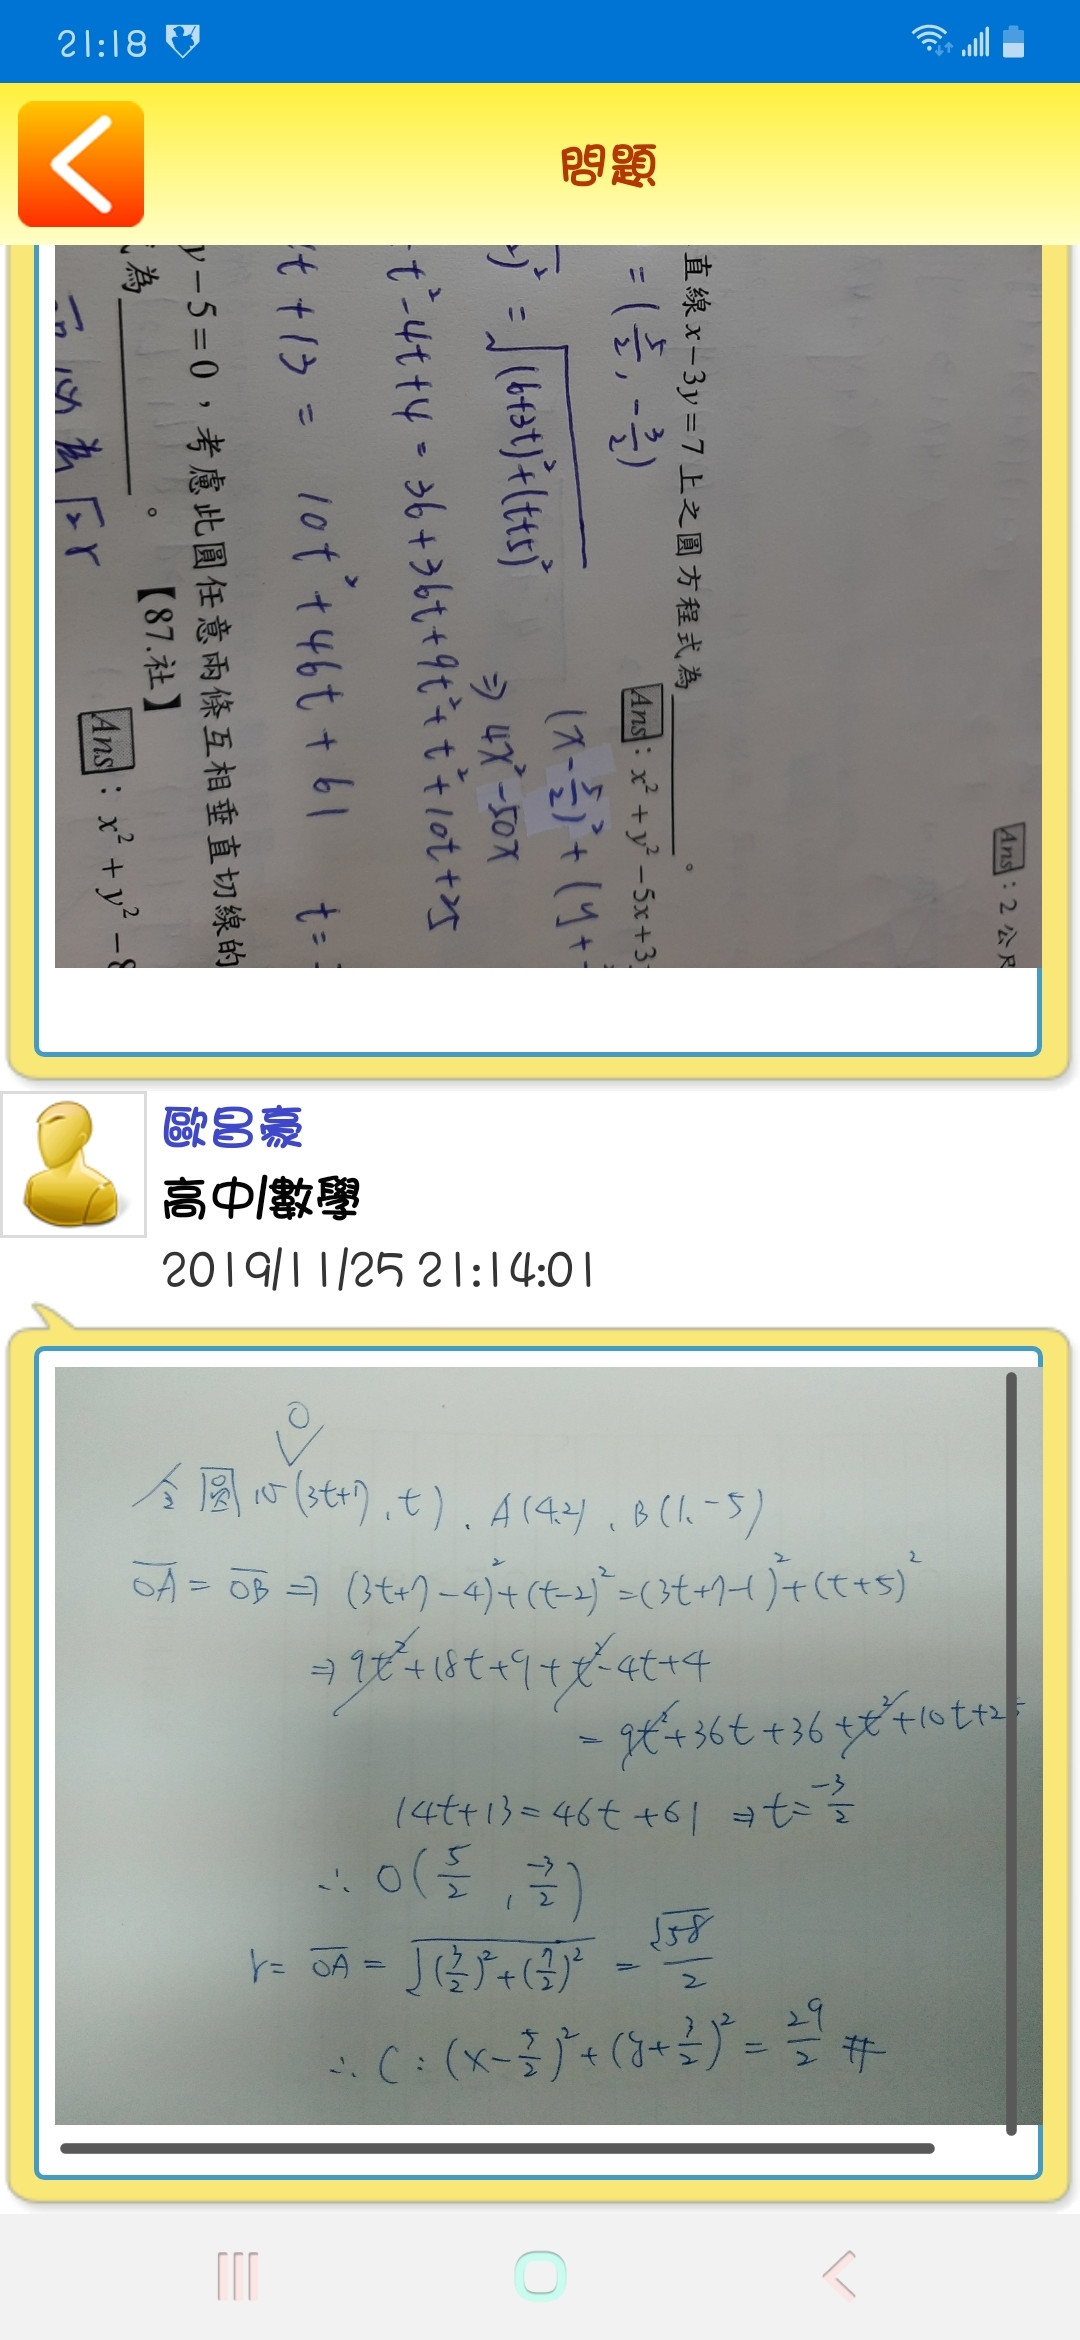 21:18
問題
Ans：2公尺
直線 x－3y＝7上之圓方程式為＿＿＿＿。
Ans：x²＋y²－5x＋3
=(5/2, -3/2)
(x-5/2)²+(y+
)² = √(6+3t)²+(t+5)²
⇒ 4x²-50x
t²-4t+4 = 36+36t+9t²+t²+10t+25
t+13 = 10t²+46t+61 t=
y－5＝0，考慮此圓任意兩條互相垂直切線的
為＿＿＿＿。【87.社】
Ans：x²＋y²－8
為√2r
歐昌豪
高中/數學
2019/11/25 21:14:01
O
令圓心(3t+7, t), A(4,2), B(1,-5)
OA = OB ⇒ (3t+7-4)²+(t-2)²=(3t+7-1)²+(t+5)²
⇒ 9t²+18t+9+t²-4t+4
= 9t²+36t+36+t²+10t+25
14t+13=46t+61 ⇒ t=-3/2
∴ O(5/2, -3/2)
r= OA = √(3/2)²+(7/2)² = √58/2
∴ C:(x-5/2)²+(y+3/2)²=29/2 #